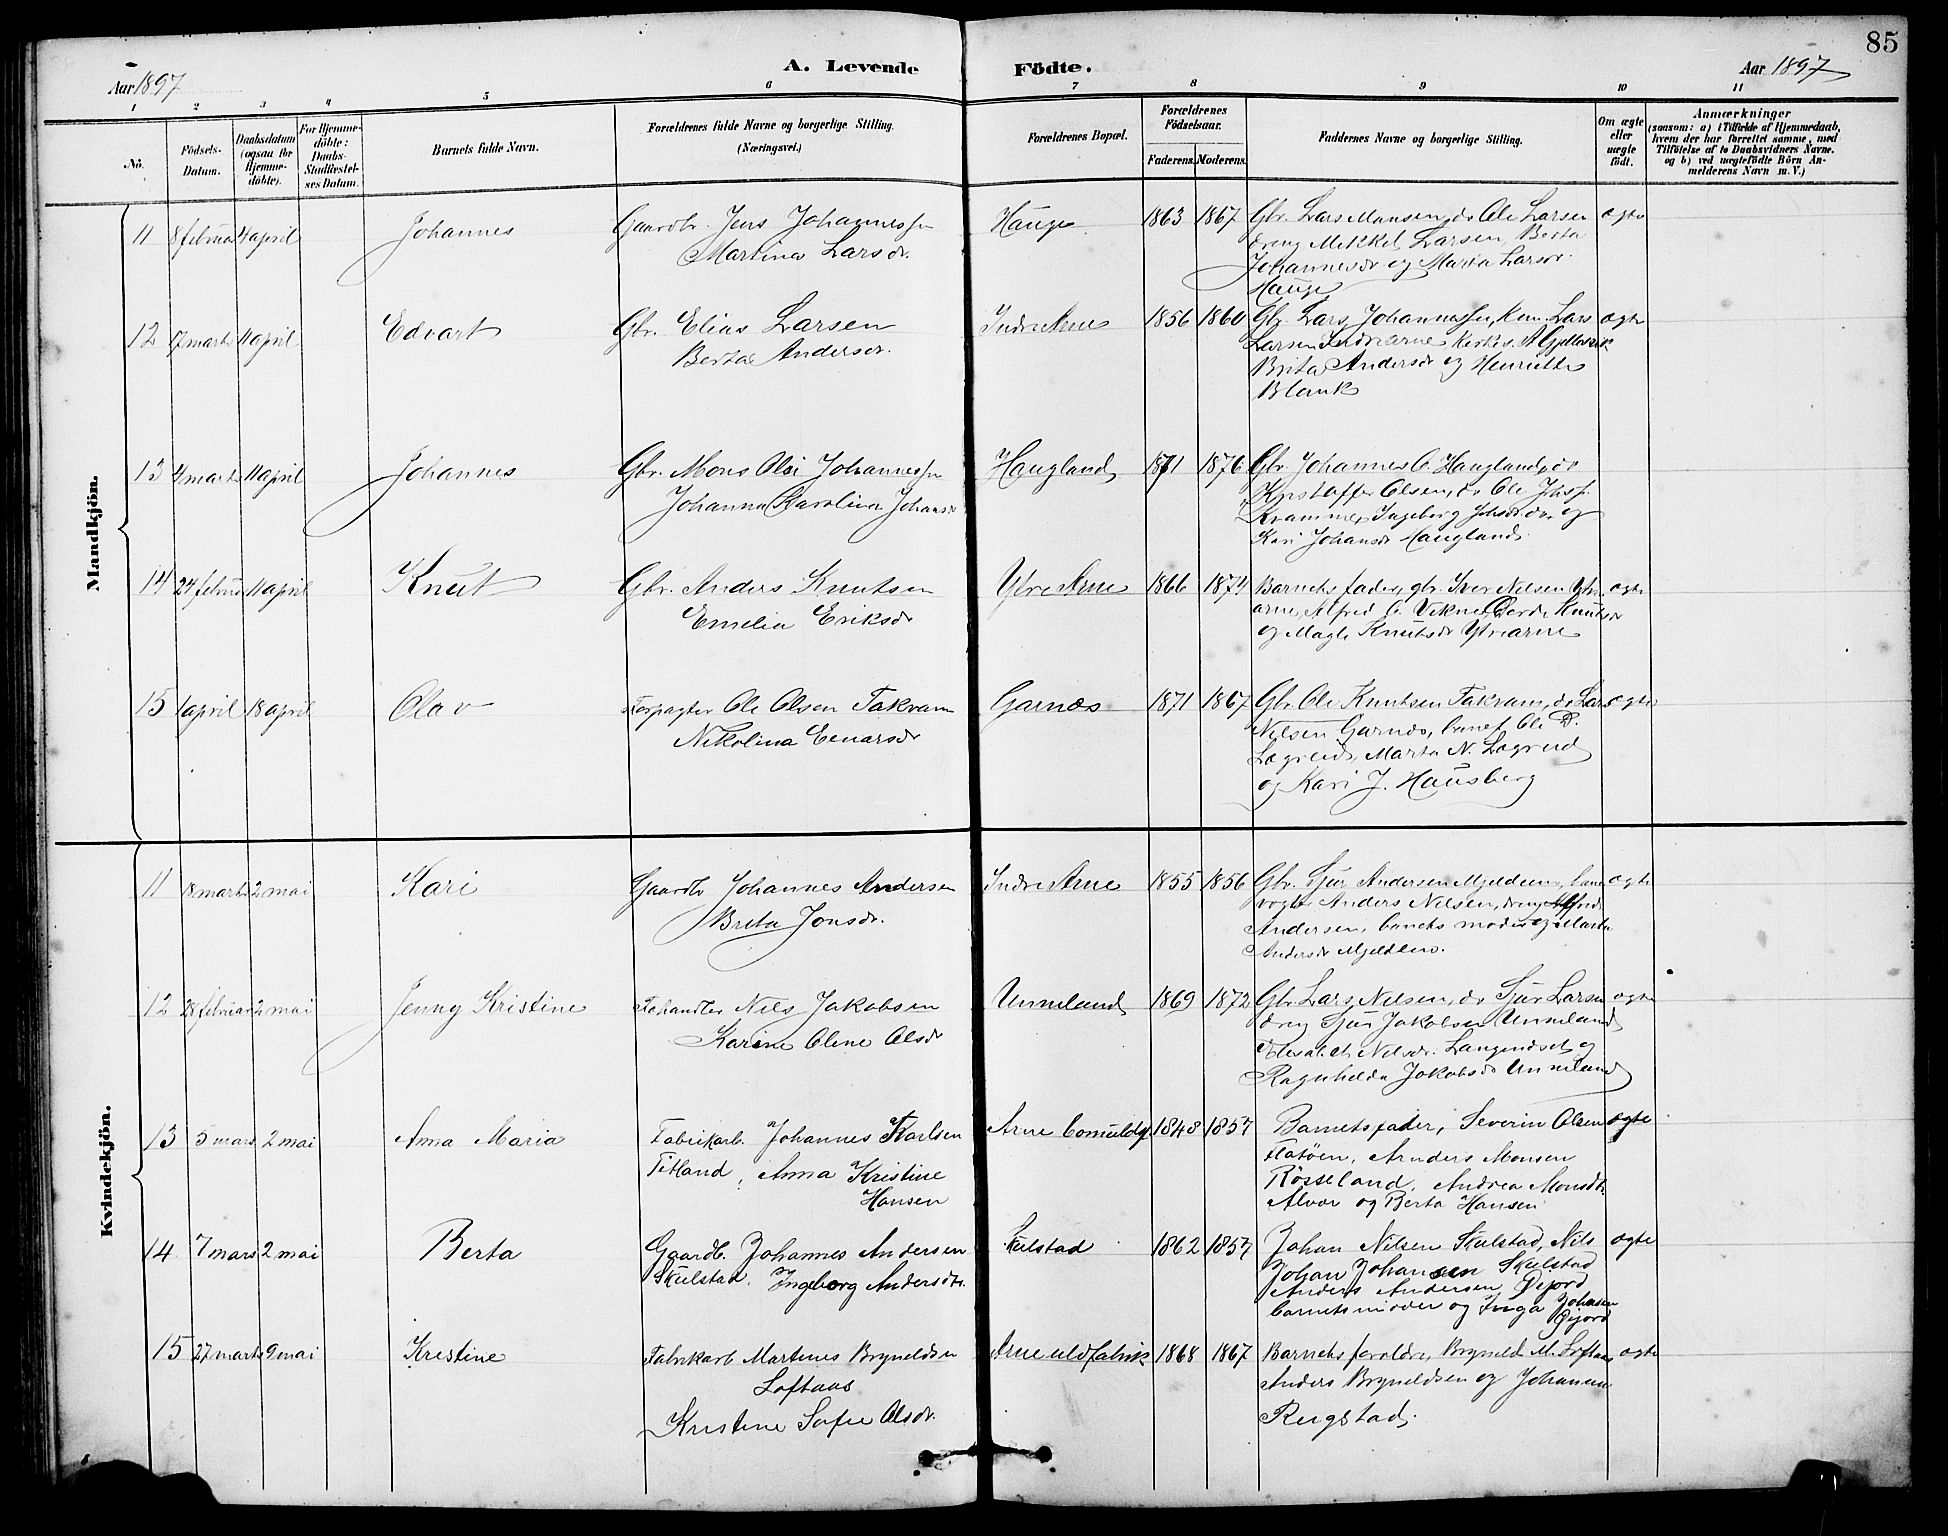 85
A. Levende Födte.
Aar 1897
Aar 1897
1 2 3 4 5 6 7 8 9 10 11
No.
Födsels-Datum.
Daabsdatum (ogsaa for Hjemme-döbte).
For Hjemme-döbte: Daabs-Stadfæstel-ses Datum.
Barnets fulde Navn.
Forældrenes fulde Navne og borgerlige Stilling. (Næringsvei.)
Forældrenes Bopæl.
Forældrenes Födselsaar.
Faderens. Moderens.
Faddernes Navne og borgerlige Stilling.
Om ægte eller uægte födt.
Anmærkninger
(saasom: a) i Tilfælde af Hjemmedaab, hvem der har forrettet samme, med Tilföielse af to Daabsvidners Navne. og b) ved uægtefödte Börn An-melderens Navn m. V.)
Mandkjön.
11 8 februar 4 april Johannes Gaardbr. Jens Johannessen Hauge 1863 1867 Gbr. Lars Monsen, do Ole Larsen ægte
Martina Larsdr. dreng Mikkel Larsen, Berta
Johannesdr. og Marta Larsdr.
Hauge
12 7 marts 11 april Edvart Gbr. Elias Larsen Indre Arne 1856 1860 Gbr. Lars Johannessen, Lars ægte
Berta Andersdr. Larsen Indrearne
Brita Andersdr og Henriette
Blank
13 4 marts 11 april Johannes Gbr. Mons Olai Johannessen Haugland 1871 1876 Gbr. Johannes O. Haugland, do
Johanna Karolina Johansdr Kristoffer Olsen, do Ole
Ingeborg og
Kari Johansdr Haugland.
14 24 februar 11 april Knut Gbr. Anders Knutsen Ytre Arne 1866 1874 Barnets fader, gbr. Iver Nilsen Ytre ægte
Emelia Eriksdr arne, Alfred O. Vikne, Knutsdr
og Knutsdr Ytrearne
15 1 april 18 april Olav Forpagter Ole Olsen Takvam Garnæs 1871 1867 Gbr. Ole Knutsen Takvam, do Lars ægte
Nikolina Einarsdr Nilsen Garnæs, Ole D.
Lægreid, Marta N. Lægreid
og Kari J. Hausberg
Kvindekjön.
11 18 marts 2 mai Kari Gaardbr Johannes Andersen Indre Arne 1855 1856 Gbr. Sjur Andersen Mjeldeim, bane ægte
Brita Jonsdr. vogter Anders Nilsen, dreng Alfred
Andersen, barnets moder og Marta
Andersdr Mjeldeim.
12 28 februar 2 mai Jenny Kristine Fehandler Nils Jakobsen Unneland 1869 1872 Gbr. Lars Nilsen, do Sjur Larsen ægte
Karine Oline Olsdr dreng Sjur Jakobsen Unneland
Nilsdr. og
Ragnhilda Jakobsdr Unneland
13 5 mars 2 mai Anna Maria Fabrikarb. Johannes Karlsen Arne 1848 1857 Barnets fader, Severin Olsen ægte
Titland, Anna Kristine Flatöen, Anders Monsen
Hansen Rösseland, Andrea Monsdtr
Alvær og Berta Hansen
14 7 mars 2 mai Berta Gaardb. Johannes Andersen Skulstad 1862 1857 Johan Nilsen Skulstad, Nils ægte
Skulstad, Ingeborg Andersdtr. Johan Johansen Skulstad
Anders Andersen Öxjord
barnets moder og Inga Johnsen
15 27 marts 9 mai Kristine Fabrikarb Martines Bryneldsen Arne uldfabrik 1868 1867 Barnets foreldre, Bryneld M. Loftaas ægte
Loftaas Anders Bryneldsen og Johanna
Kristine Sofie Olsdr. Rugstad.